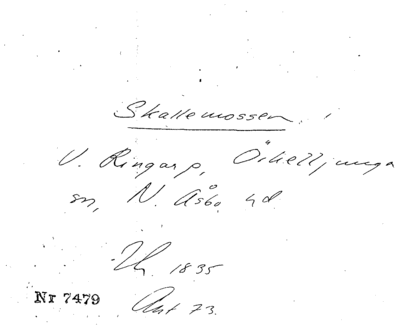 Skallemossen
V. Ringarp, Örkelljunga
sn, N. Åsbo hd
1835
Nr 7479
Ant 73.